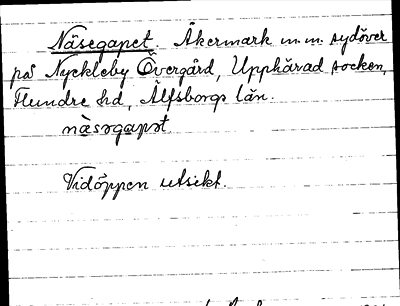 Näsegapet. Åkermark m.m. sydöver
på Nyckleby Övergård, Upphärad socken,
Flundre hd, Älfsborgs län.
nàsəgapət.
Vidöppen utsikt.